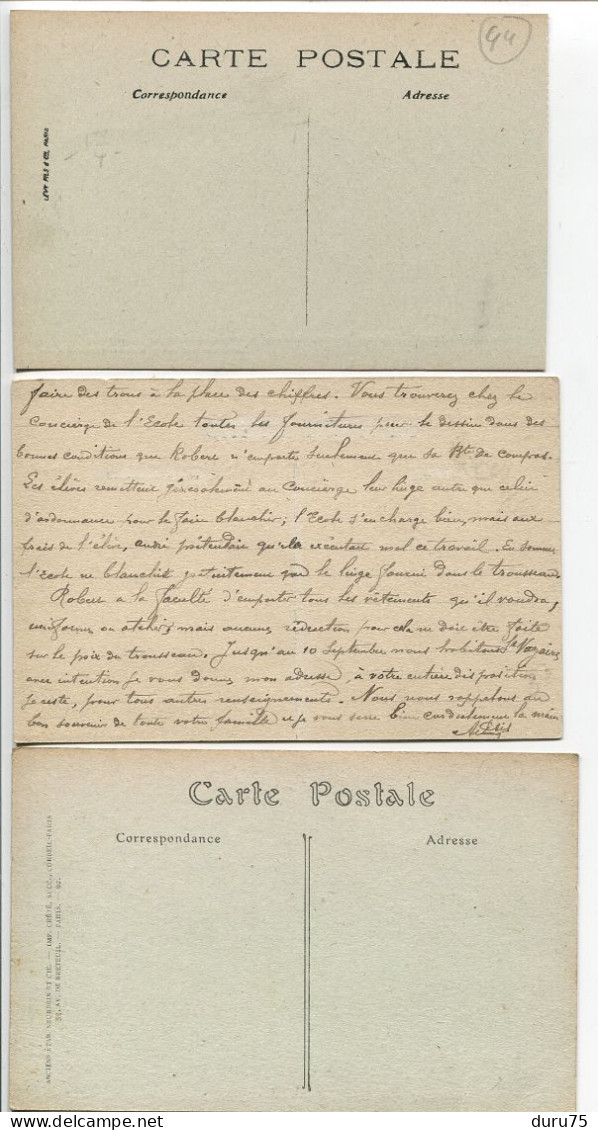 44
CARTE POSTALE
Correspondance Adresse
LÉVY FILS & Cie, PARIS
faire des trous à la place des chiffres. Vous trouverez chez le
concierge de l'Ecole toutes les fournitures pour le dessin dans des
bonnes conditions que Robert n'emporte seulement que sa Bte de compas.
Les élèves remettent généralement au concierge leur linge autre que celui
d'ordonnance pour le faire blanchir; l'Ecole s'en charge bien, mais aux
frais de l'élève, qu'elle exécutait mal ce travail. En somme
l'Ecole ne blanchit gratuitement que le linge fourni dans le trousseau.
Robert a la faculté d'emporter tous les vêtements qu'il voudra,
uniformes ou atelier; mais aucune réduction pour cela ne doit être faite
sur le prix du trousseau. Jusqu'au 10 Septembre nous habitons St Nazaire
avec intention je vous donne mon adresse, à votre entière disposition
je reste, pour tous autres renseignements. Nous nous rappelons au
bon souvenir de toute votre famille et je vous serre bien cordialement la main
Carte Postale
Correspondance Adresse
ANCIENS ÉTAB. NEURDEIN ET CIE. — IMP. CRÉTÉ, SUCC., CORBEIL-PARIS
52, AV. DE BRETEUIL. — PARIS.
delcampe.net
duru75